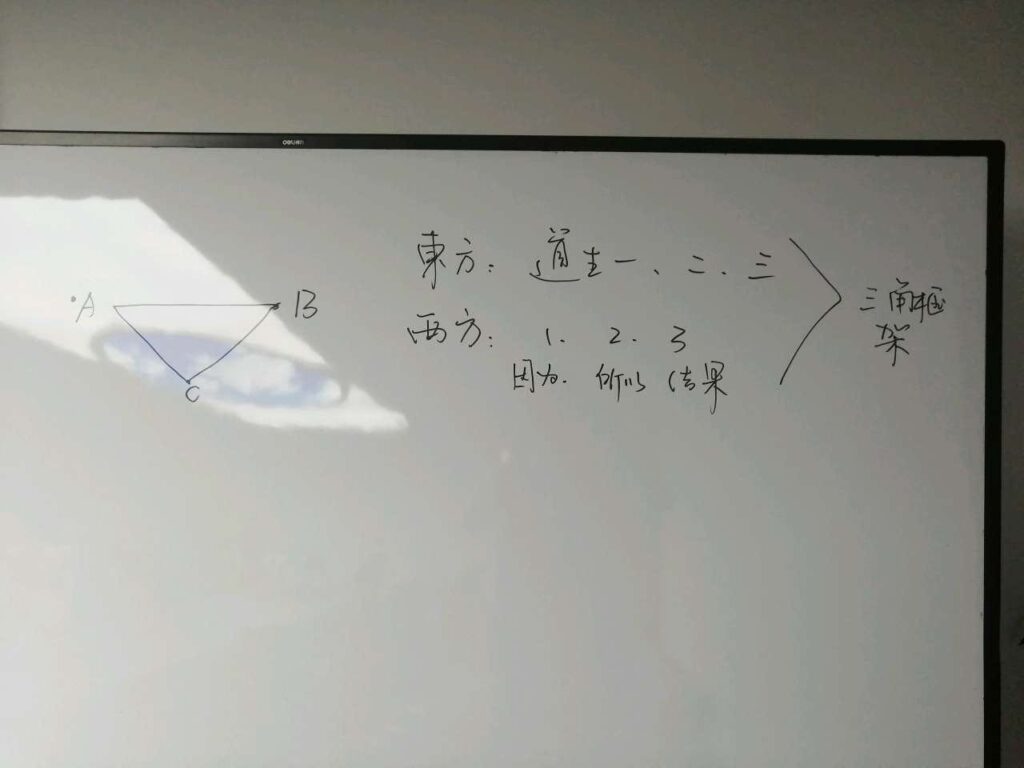 deli
東方：道生一、二、三
A B
西方：1. 2. 3
三角框
架
因为. 所以 结果
C